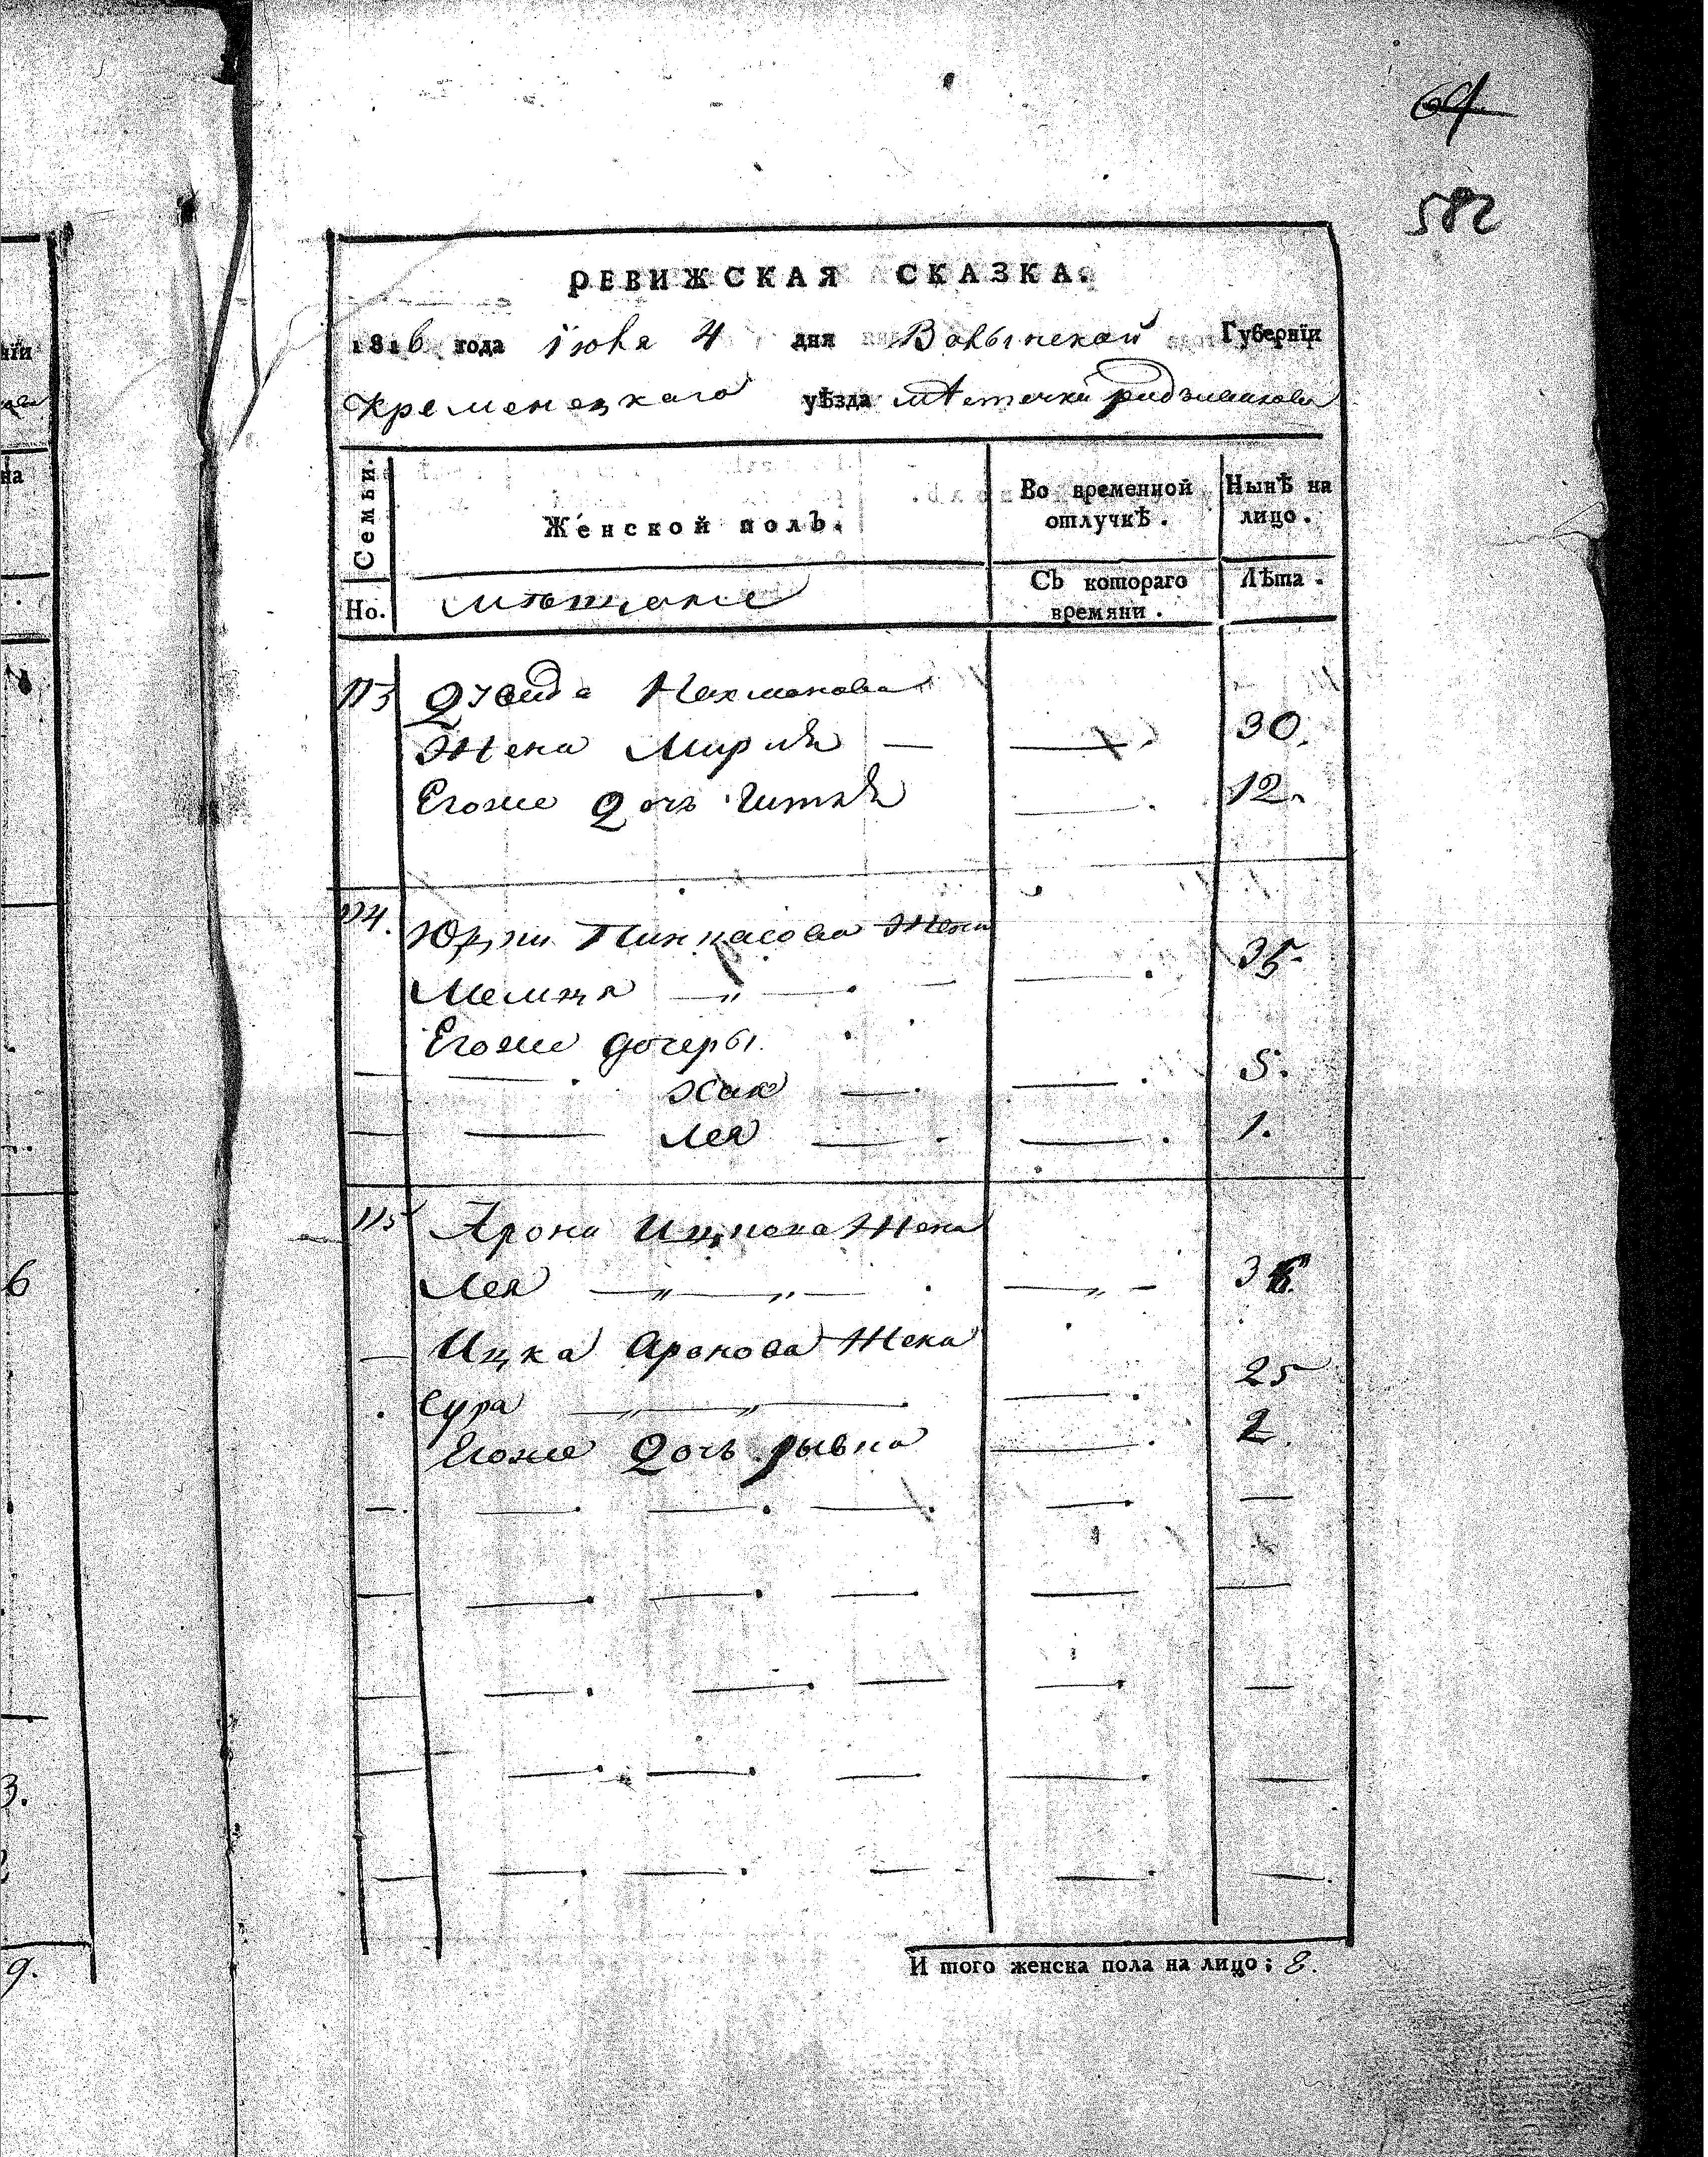 64
582
РЕВИЖСКАЯ СКАЗКА.
1816 года Іюня 4 дня Волынской Губернїи
Кременецкаго уѣзда мѣстечка радзивилова
Семьи.
Но.
Женской полъ.
мѣщане
Во временной отлучкѣ.
Съ котораго времяни.
Нынѣ на лицо.
Лѣта.
113 Давида Нахманова
Жена Мирля — — 30.
Егоже Дочь Гитля — 12.
114. Пинкасова Жена
— — 35.
Егоже дочеры
— — Хая — — 5.
— — Лея — — 1.
115 Арона Ицкова Жена
Лея — „ — „ — — „ — 36.
— Ицка Аронова Жена
Сура — „ — „ — — 25
Егоже Дочь рывка — 2.
И того женска пола на лицо; 8.
нїи
на
6
3.
2
9.